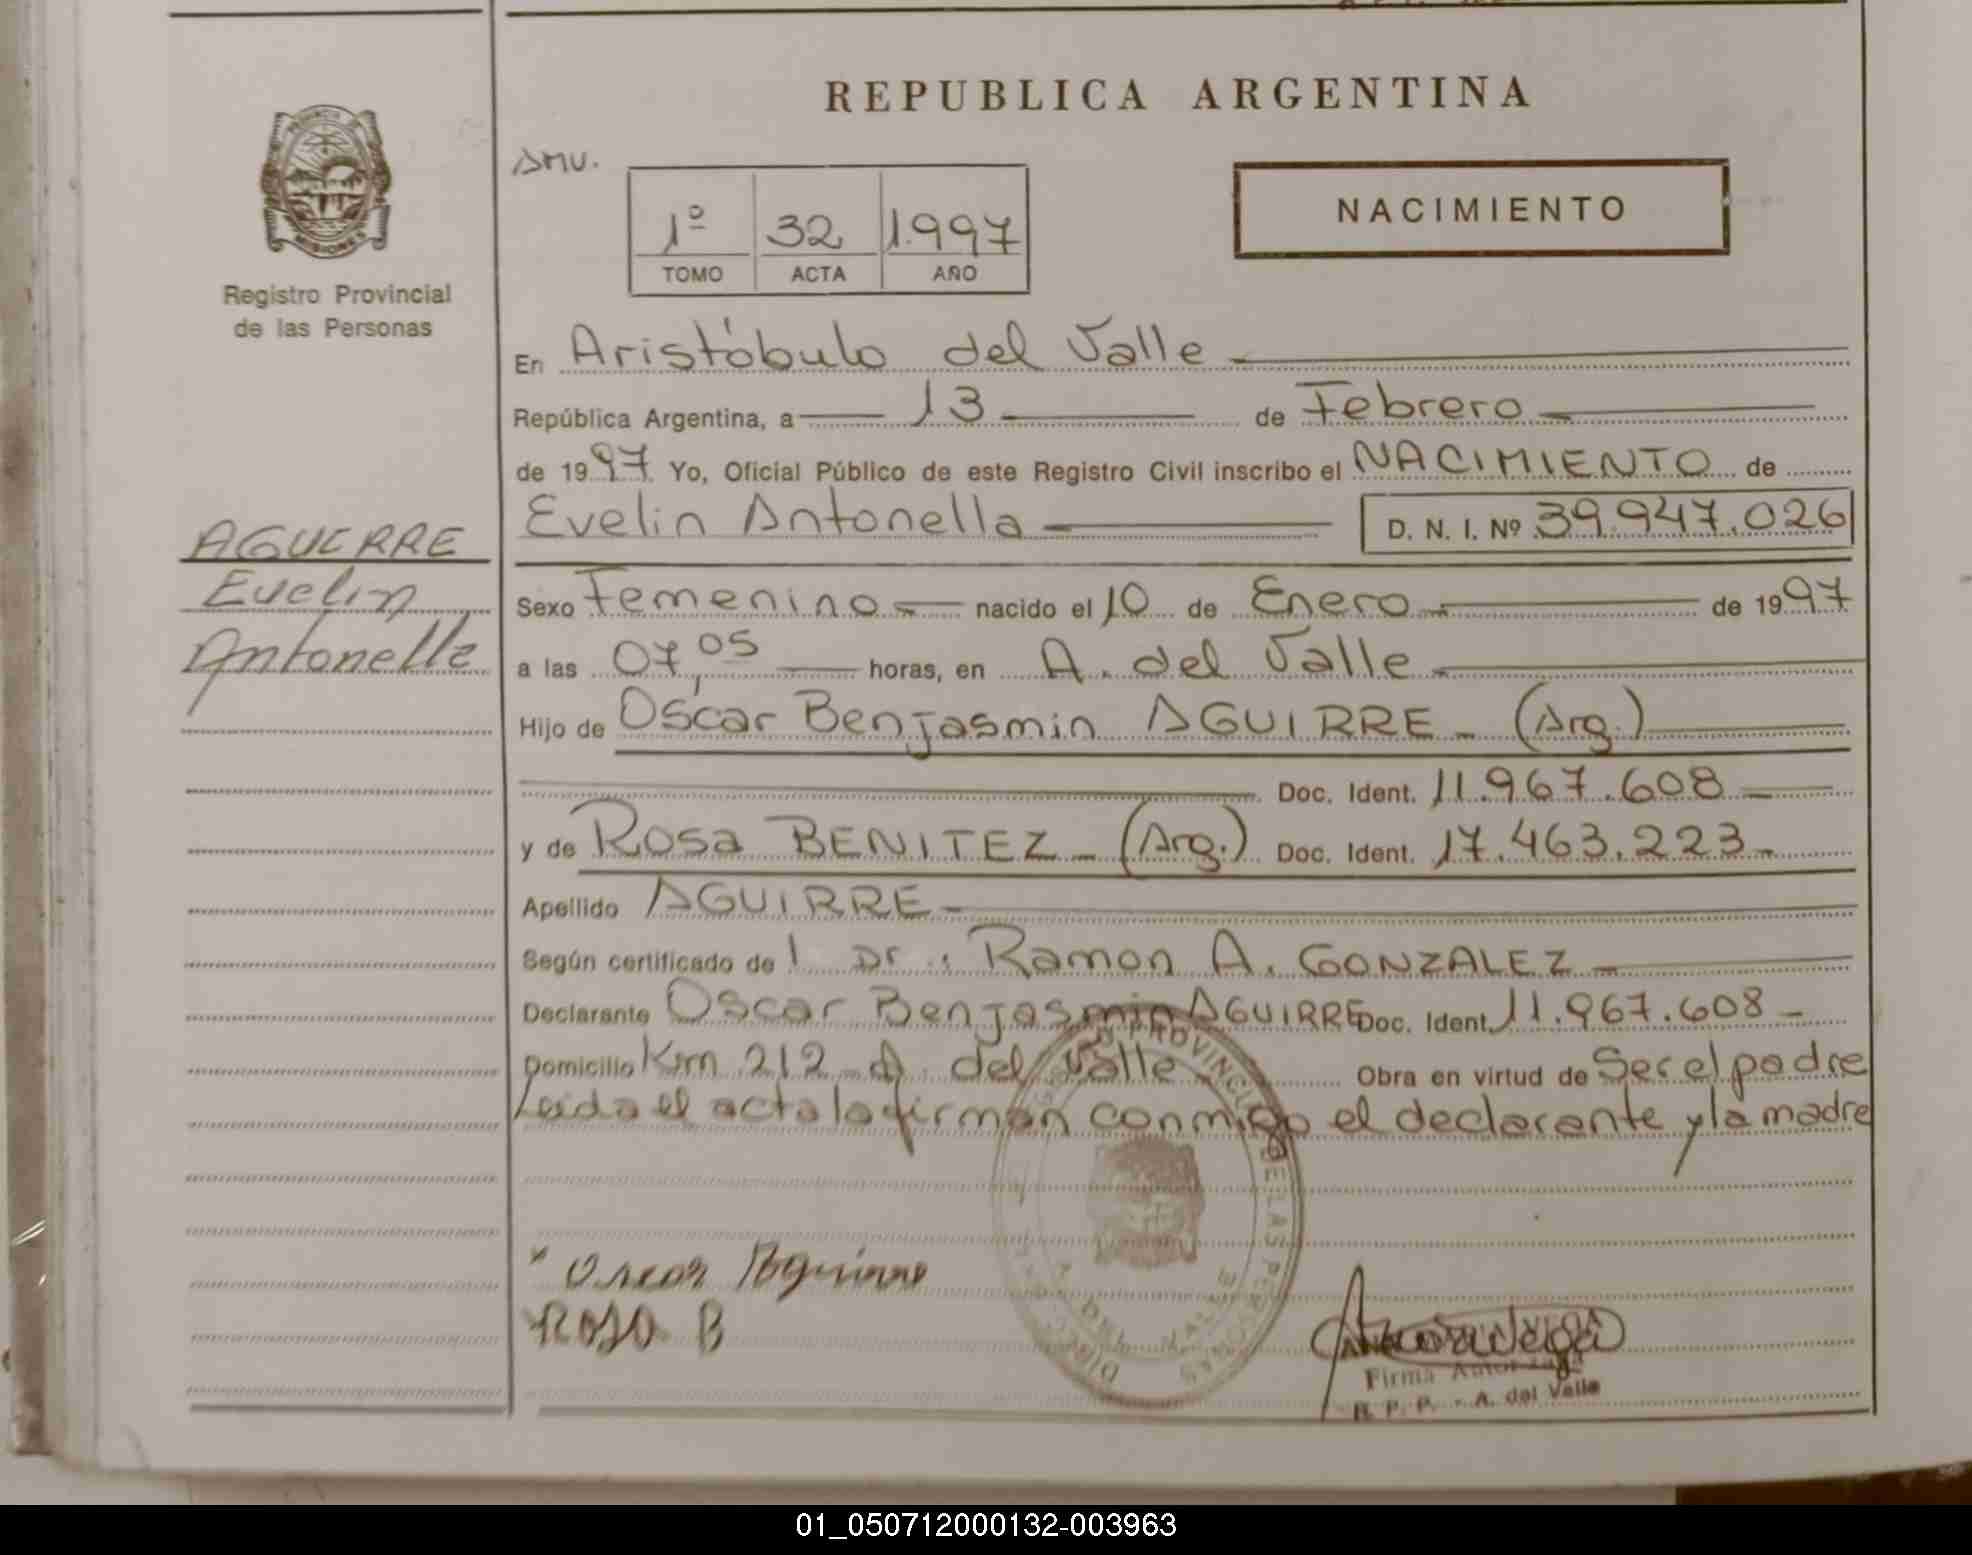 REPUBLICA ARGENTINA
PROVINCIA DE
MISIONES
Registro Provincial
de las Personas
AMV.
1º 32 1.997
TOMO ACTA AÑO
NACIMIENTO
En Aristóbulo del Valle
República Argentina, a 13 de Febrero
de 1997 Yo, Oficial Público de este Registro Civil inscribo el NACIMIENTO de
Evelin Antonella D. N. I. Nº 39.947.026
AGUERRE
Evelin
Antonella
Sexo Femenino nacido el 10 de Enero de 1997
a las 07,05 horas, en A. del Valle
Hijo de Oscar Benjasmin AGUIRRE - (Arg.)
Doc. Ident. 11.967.608
y de Rosa BENITEZ - (Arg.) Doc. Ident. 17.463.223-
Apellido AGUIRRE
Según certificado de l Dr.: Ramon A. GONZALEZ
Declarante Oscar Benjasmin AGUIRRE Doc. Ident. 11.967.608 -
Domicilio Km 212 - A. del Valle Obra en virtud de Ser el padre
Leida el acta la firman conmigo el declarante y la madre
PROVINCIAL DE LAS PERSONAS
DEL VALLE
Oscar Aguirre
ROSA B
Firma Autorizada
R. P. P. - A. del Valle
01_050712000132-003963